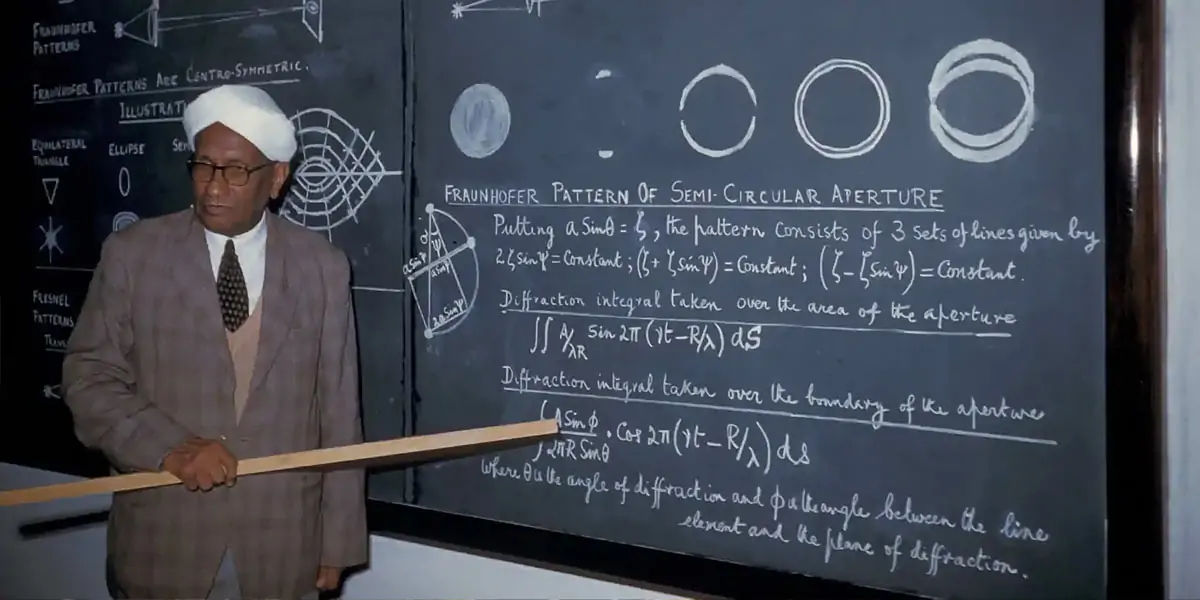 FRAUNHOFER
PATTERNS
FRAUNHOFER PATTERNS ARE CENTRO-SYMMETRIC.
EQUILATERAL
TRIANGLE
ELLIPSE
FRESNEL
PATTERNS
FRAUNHOFER PATTERN OF SEMI-CIRCULAR APERTURE
Putting a Sinθ = ζ, the pattern consists of 3 sets of lines given by
2ζ sinψ = Constant ; (ζ + ζ sinψ) = Constant ; (ζ – ζ sinψ) = Constant.
a Sinψ
ψ
2a Sinψ
Diffraction integral taken over the area of the aperture
∬ A/λR Sin 2π (γt – R/λ) dS
Diffraction integral taken over the boundary of the aperture
∫ A Sin φ / 2πR Sin θ . Cos 2π (γt – R/λ) ds
where θ is the angle of diffraction and φ the angle between the line
element and the plane of diffraction.